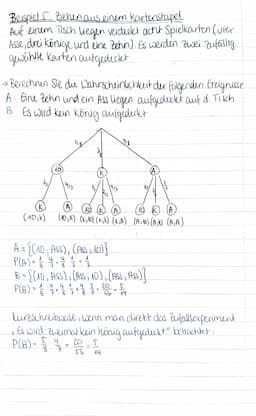 Beispiel 5: Ziehen aus einem Kartenstapel
Auf einem Tisch liegen verdeckt acht Spielkarten (vier
Asse, drei Könige und eine Zehn). Es werden zwei zufällig
gewählte Karten aufgedeckt.
→ Berechnen Sie die Wahrscheinlichkeit der folgenden Ereignisse
A Eine Zehn und ein Ass liegen aufgedeckt auf d. Tisch
B Es wird kein König aufgedeckt
10 K A
K A 10 K A 10 K A
(10,K)
A = {(10, ASS), (ASS, 10)}
B = {(10, ASS), (ASS, 10), (ASS, ASS)}
Kurzschreibweise, wenn man direkt das Zufallsexperiment
"Es wird zweimal kein König aufgedeckt" betrachtet:
P(B) = 5/8 · 4/7 = 20/56 = 5/14